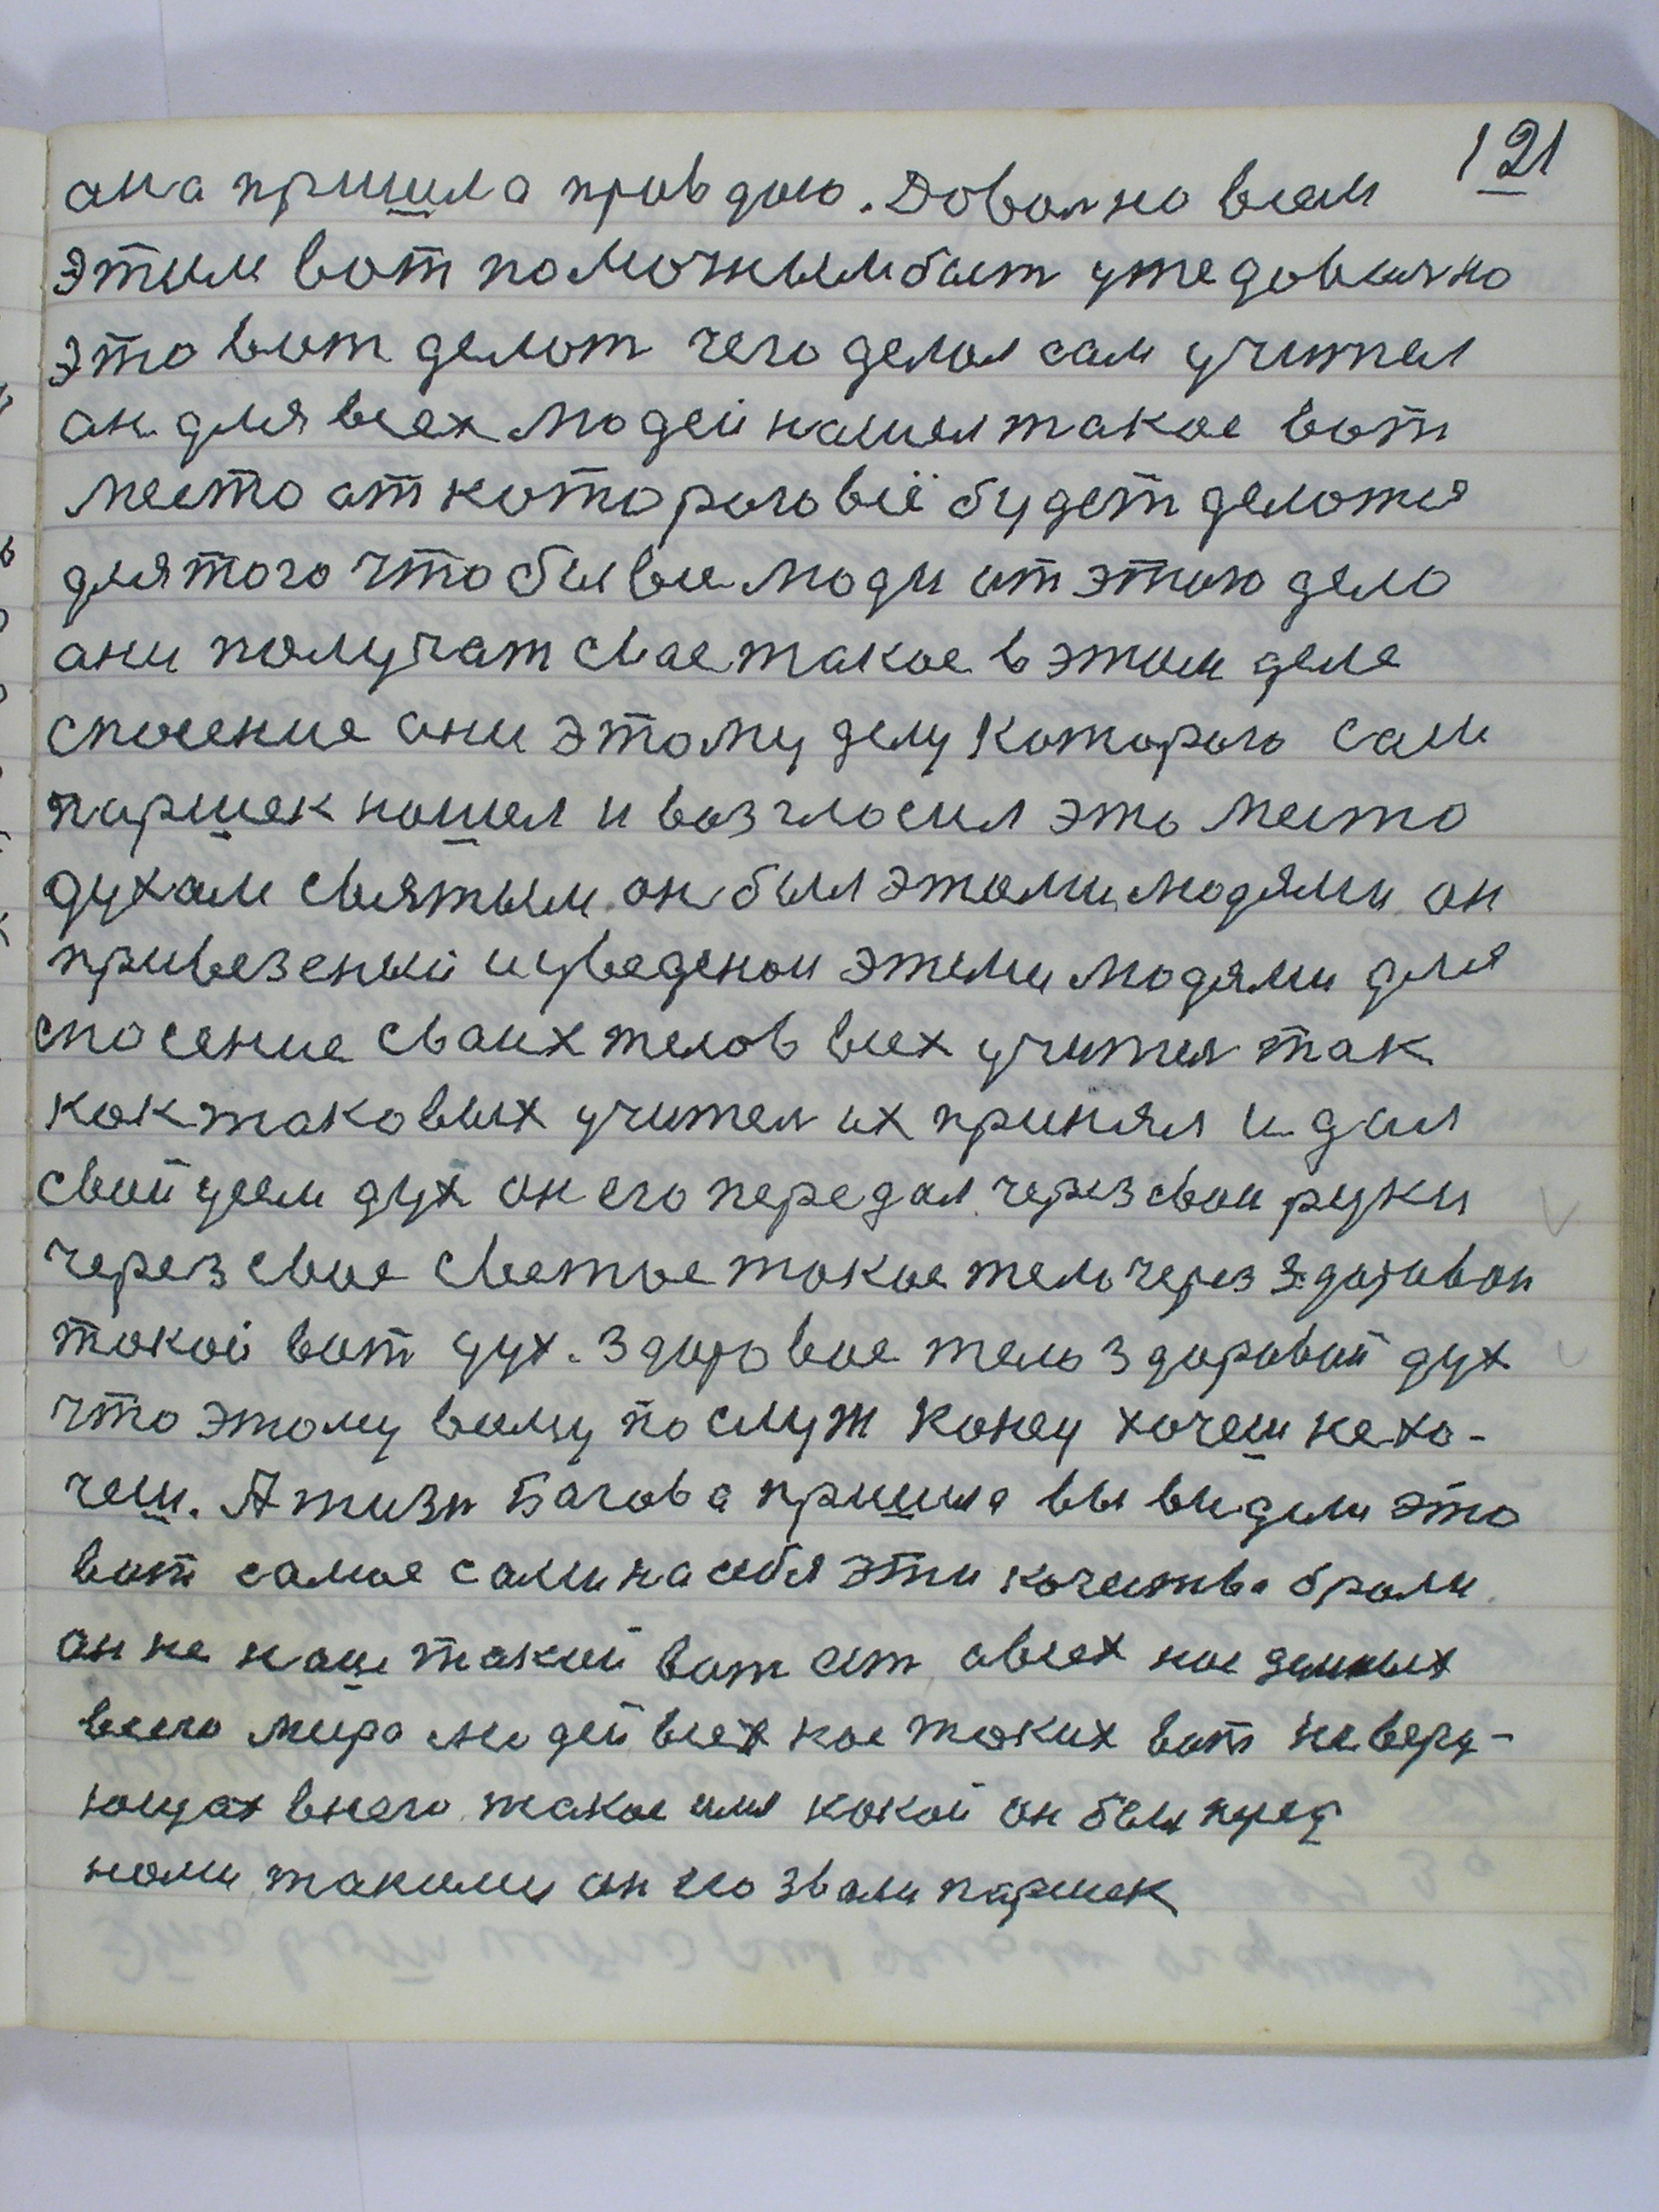 121
ана пришла правдаю. Доволно всем
этим вот паложным быт уже доволно
это вот делат чего делал сам учител
ан для всех людей нашел такое вот
место ат которого всё будет делатся
для того что бы все люди ат этаю дела
ани получат свае такое в этом деле
спосение ани этому делу которого сам
паршек нашел и вазгласил это место
духам святым он был этоми людями он
привезеный и уведеной этими людями для
спосение сваих телов всех учител так
как таковых учител их принял и дал
свой усем дух он его передал через свои руки
через свое светое такое тело через здоровой
такой вот дух. Здоровое тело здоровый дух
что этому всему послуж конец хочеш не хо-
чеш. А жизн Багова пришла вы видели это
вот самое сами на себя эти качества брали
ан не наш такий вот ат авсех нас земных
всего мира людей всех нас таких вот неверу-
ющах в него такое имя какой он был пред
нами такими ан его звали паршек